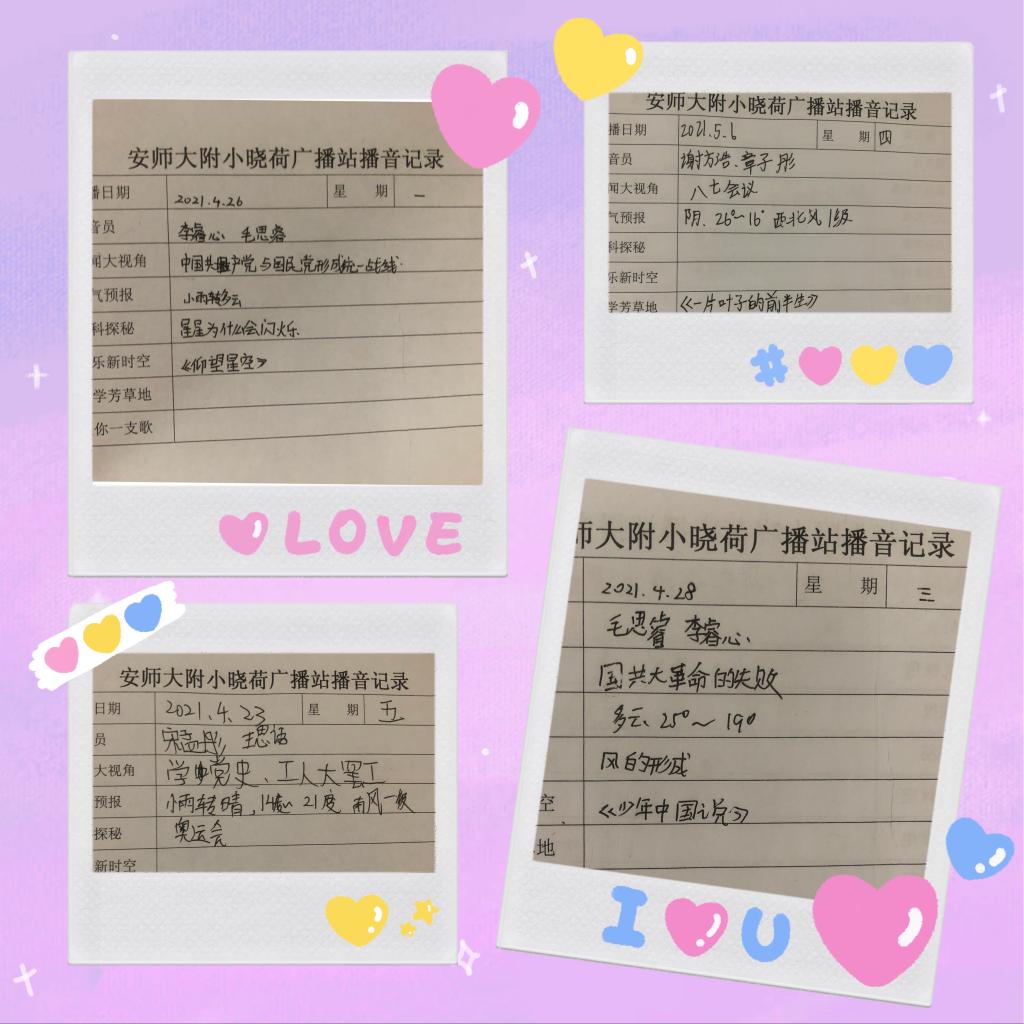 安师大附小晓荷广播站播音记录
播日期 2021.4.26 星 期 一
音员 李睿心 毛思睿
闻大视角 中国共产党与国民党形成统一战线
气预报 小雨转多云
科探秘 星星为什么会闪烁
乐新时空 《仰望星空》
学芳草地
你一支歌
LOVE
安师大附小晓荷广播站播音记录
播日期 2021.5.6 星 期 四
音员 谢方浩、章子彤
闻大视角 八七会议
气预报 阴、26°~16° 西北风1级
科探秘
乐新时空
学芳草地 《一片叶子的前半生》
#
安师大附小晓荷广播站播音记录
日期 2021.4.23 星 期 五
员
大视角 学党史、工人大罢工
预报 小雨转晴, 14 21度 南风一级
探秘 奥运会
新时空
师大附小晓荷广播站播音记录
2021.4.28 星 期 三
毛思睿 李睿心、
国共大革命的失败
多云、25°~19°
风的形成
空 《少年中国说》
地
I U